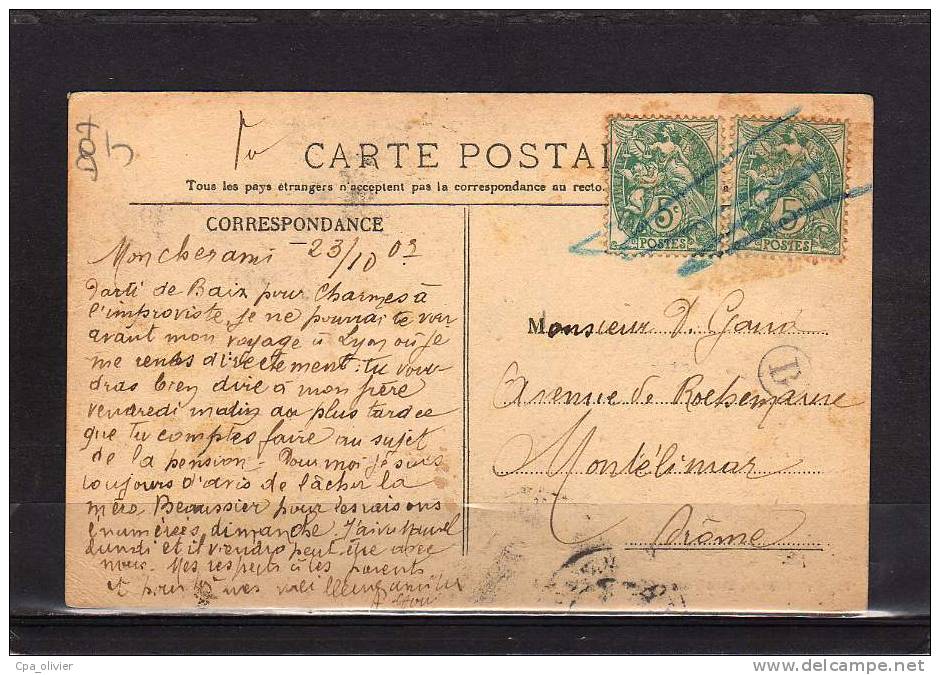 D07
b
CARTE POSTAL
Tous les pays étrangers n'acceptent pas la correspondance au recto.
CORRESPONDANCE
5c
POSTES
5
POSTES
Mon cher ami 23/10 03
Parti de Baix pour Charmes à
l'improviste, je ne pourrai te voir
avant mon voyage à Lyon où je
me rends directement : tu vou-
dras bien dire à mon frère
vendredi matin au plus tard ce
que tu comptes faire au sujet
de la pension - Pour moi je suis
toujours d'avis de lâcher la
mère Beaussier pour les raisons
énumérées, dimanche. J'ai vu
lundi et il viendra peut-être avec
nous. Mes respects à tes parents
et pour
Monsieur D. Gand
B
Avenue de Rochemaure
Montélimar
Drôme
Cpa_olivier
www.delcampe.net